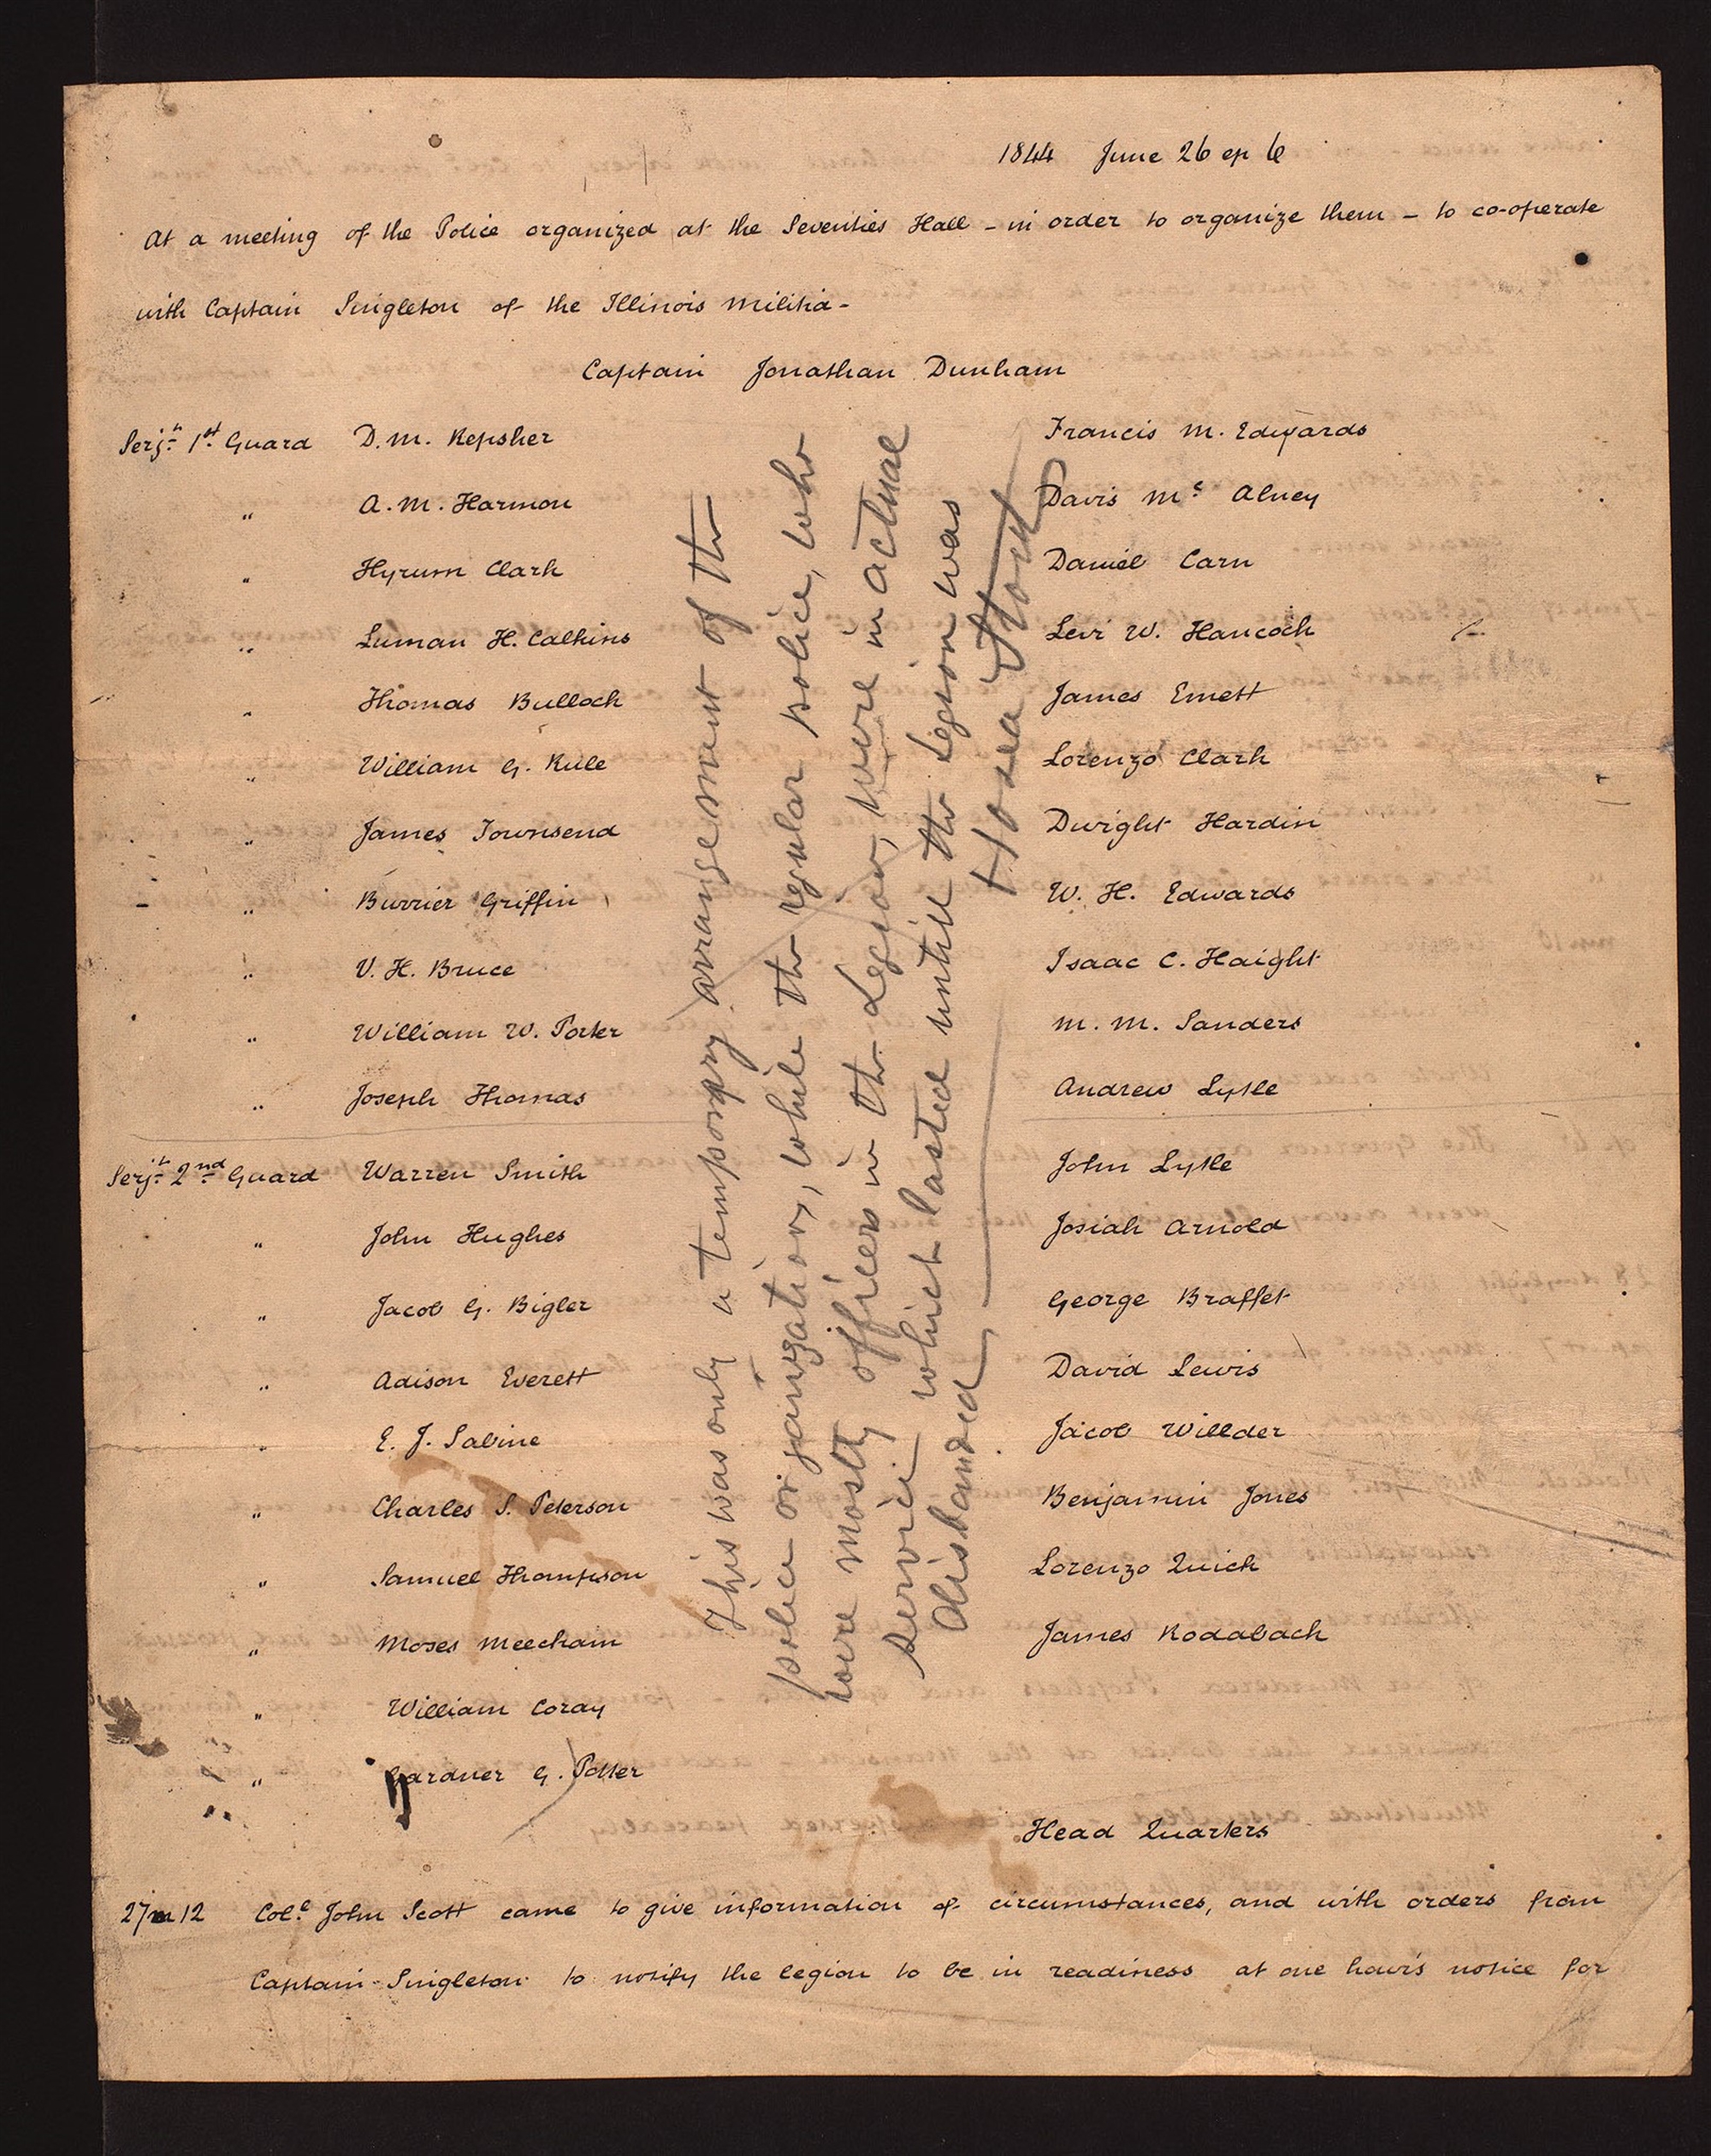 1844 June 26 ep 6
At a meeting of the Police organized at the Seventies Hall - in order to organize them - to co-operate
with Captain Singleton of the Illinois Militia -
Captain Jonathan Dunham
Serjt. 1st Guard D. M. Repsher
" A. M. Harmon
" Hyrum Clark
" Luman H. Calkins
" Thomas Bullock
" William G. Rule
" James Townsend
" Burrier Griffin
" V. H. Bruce
" William W. Porter
" Joseph Thomas
Serjt. 2nd Guard Warren Smith
" John Hughes
" Jacob G. Bigler
" Adison Everett
" E. J. Sabine
" Charles S. Peterson
" Samuel Thompson
" Moses Meecham
" William Coray
" Gardner G. Potter
This was only a temporary arrangement of the
police organization, while the regular police, who
were mostly officers in the Legion, were in actual
service which lasted untill the Legion was
disbanded
Hosea Stout
Francis M. Edwards
Davis Mc Alney
Daniel Carn
Levi W. Hancock
James Emett
Lorenzo Clark
Dwight Hardin
W. H. Edwards
Isaac C. Haight
M. M. Sanders
Andrew Lytle
John Lytle
Josiah Arnold
George Braffet
David Lewis
Jacob Willder
Benjamin Jones
Lorenzo Quick
James Rodaback
Head Quarters
27 m 12 Coll. John Scott came to give information of circumstances, and with orders from
Captain Singleton to notify the legion to be in readiness at one hour's notice for